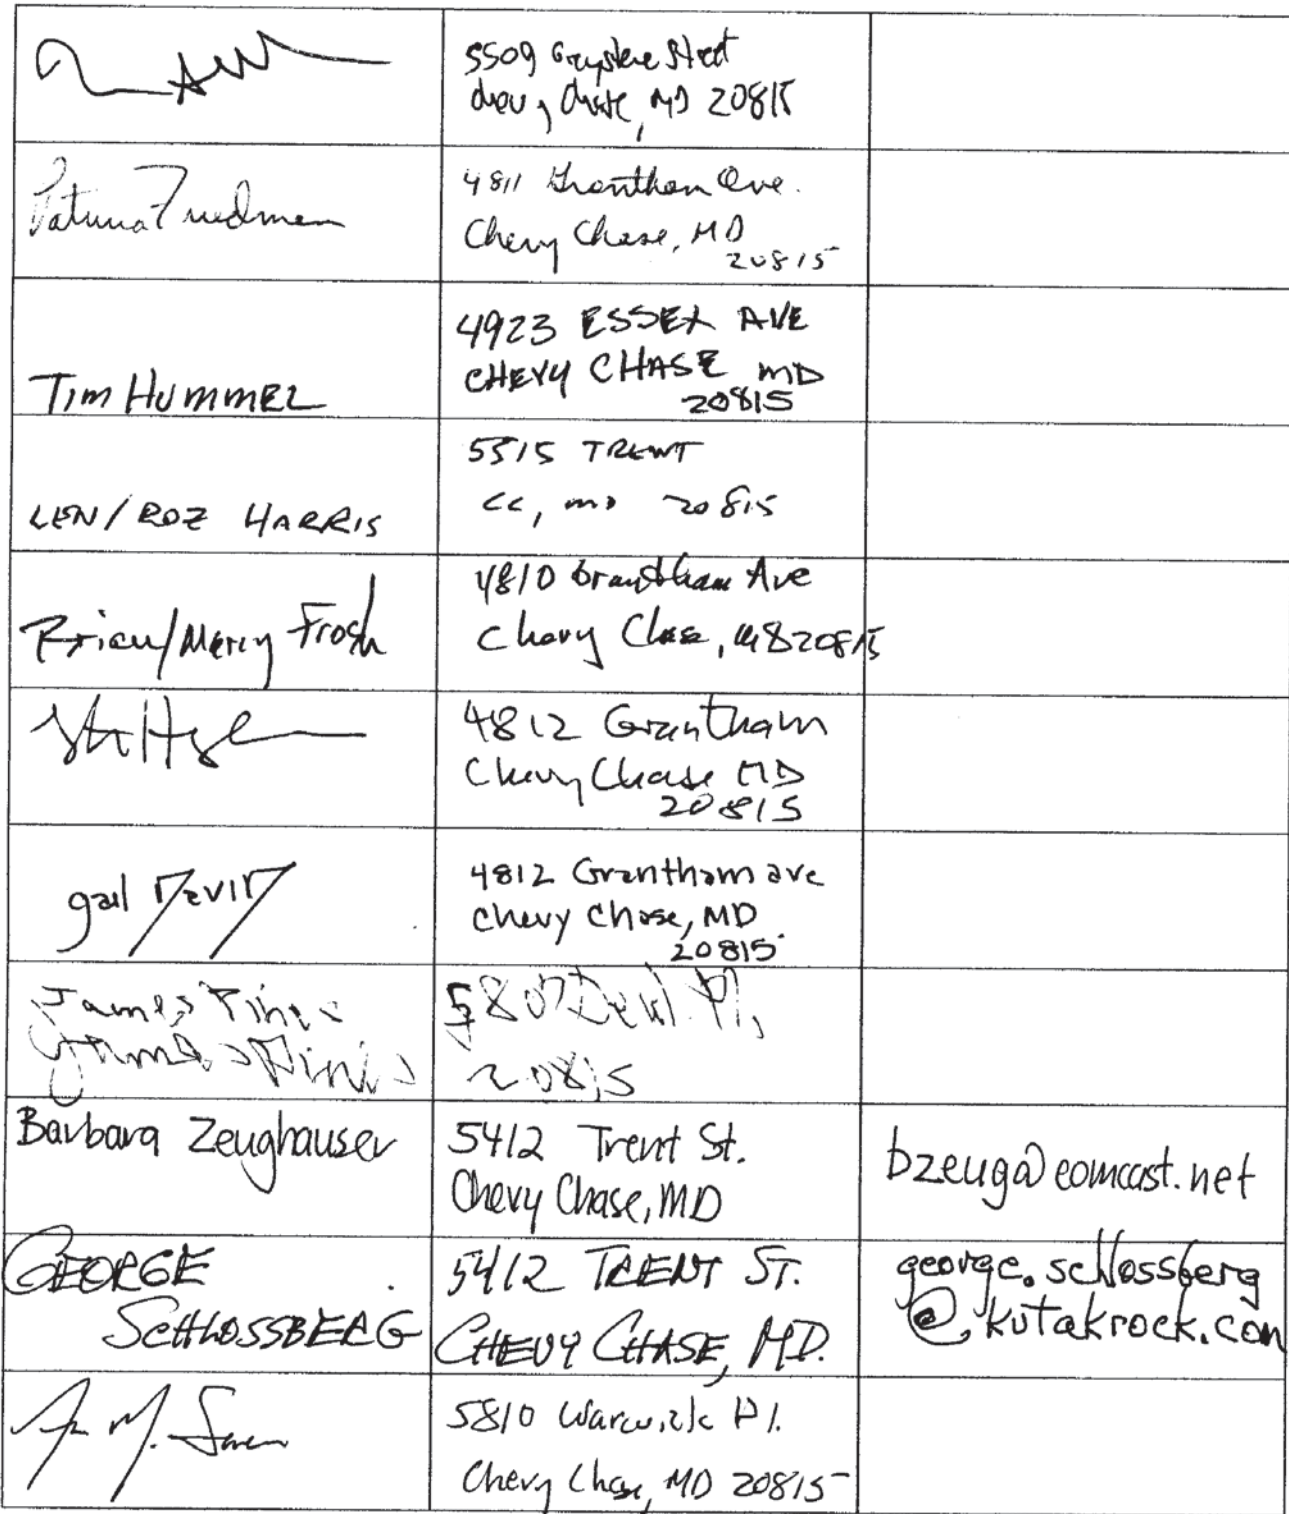 5509 Greystone Street
Chevy Chase, MD 20815
Patricia Friedman
4811 Grantham Ave.
Chevy Chase, MD
20815
TIM HUMMEL
4923 ESSEX AVE
CHEVY CHASE MD
20815
LEN/ROZ HARRIS
5515 TRENT
CC, MD 20815
Brian/Marcy Frosh
4810 Grantham Ave
Chevy Chase, MD 20815
4812 Grantham
Chevy Chase MD
20815
gail
4812 Grantham ave
Chevy Chase, MD
20815
James
James
5807 Pl,
20815
Barbara Zeughauser
5412 Trent St.
Chevy Chase, MD
bzeug@comcast.net
GEORGE
SCHLOSSBERG
5412 TRENT ST.
CHEVY CHASE, MD.
george.schlossberg
@kutakrock.com
M.
5810 Warwick Pl.
Chevy Chase, MD 20815